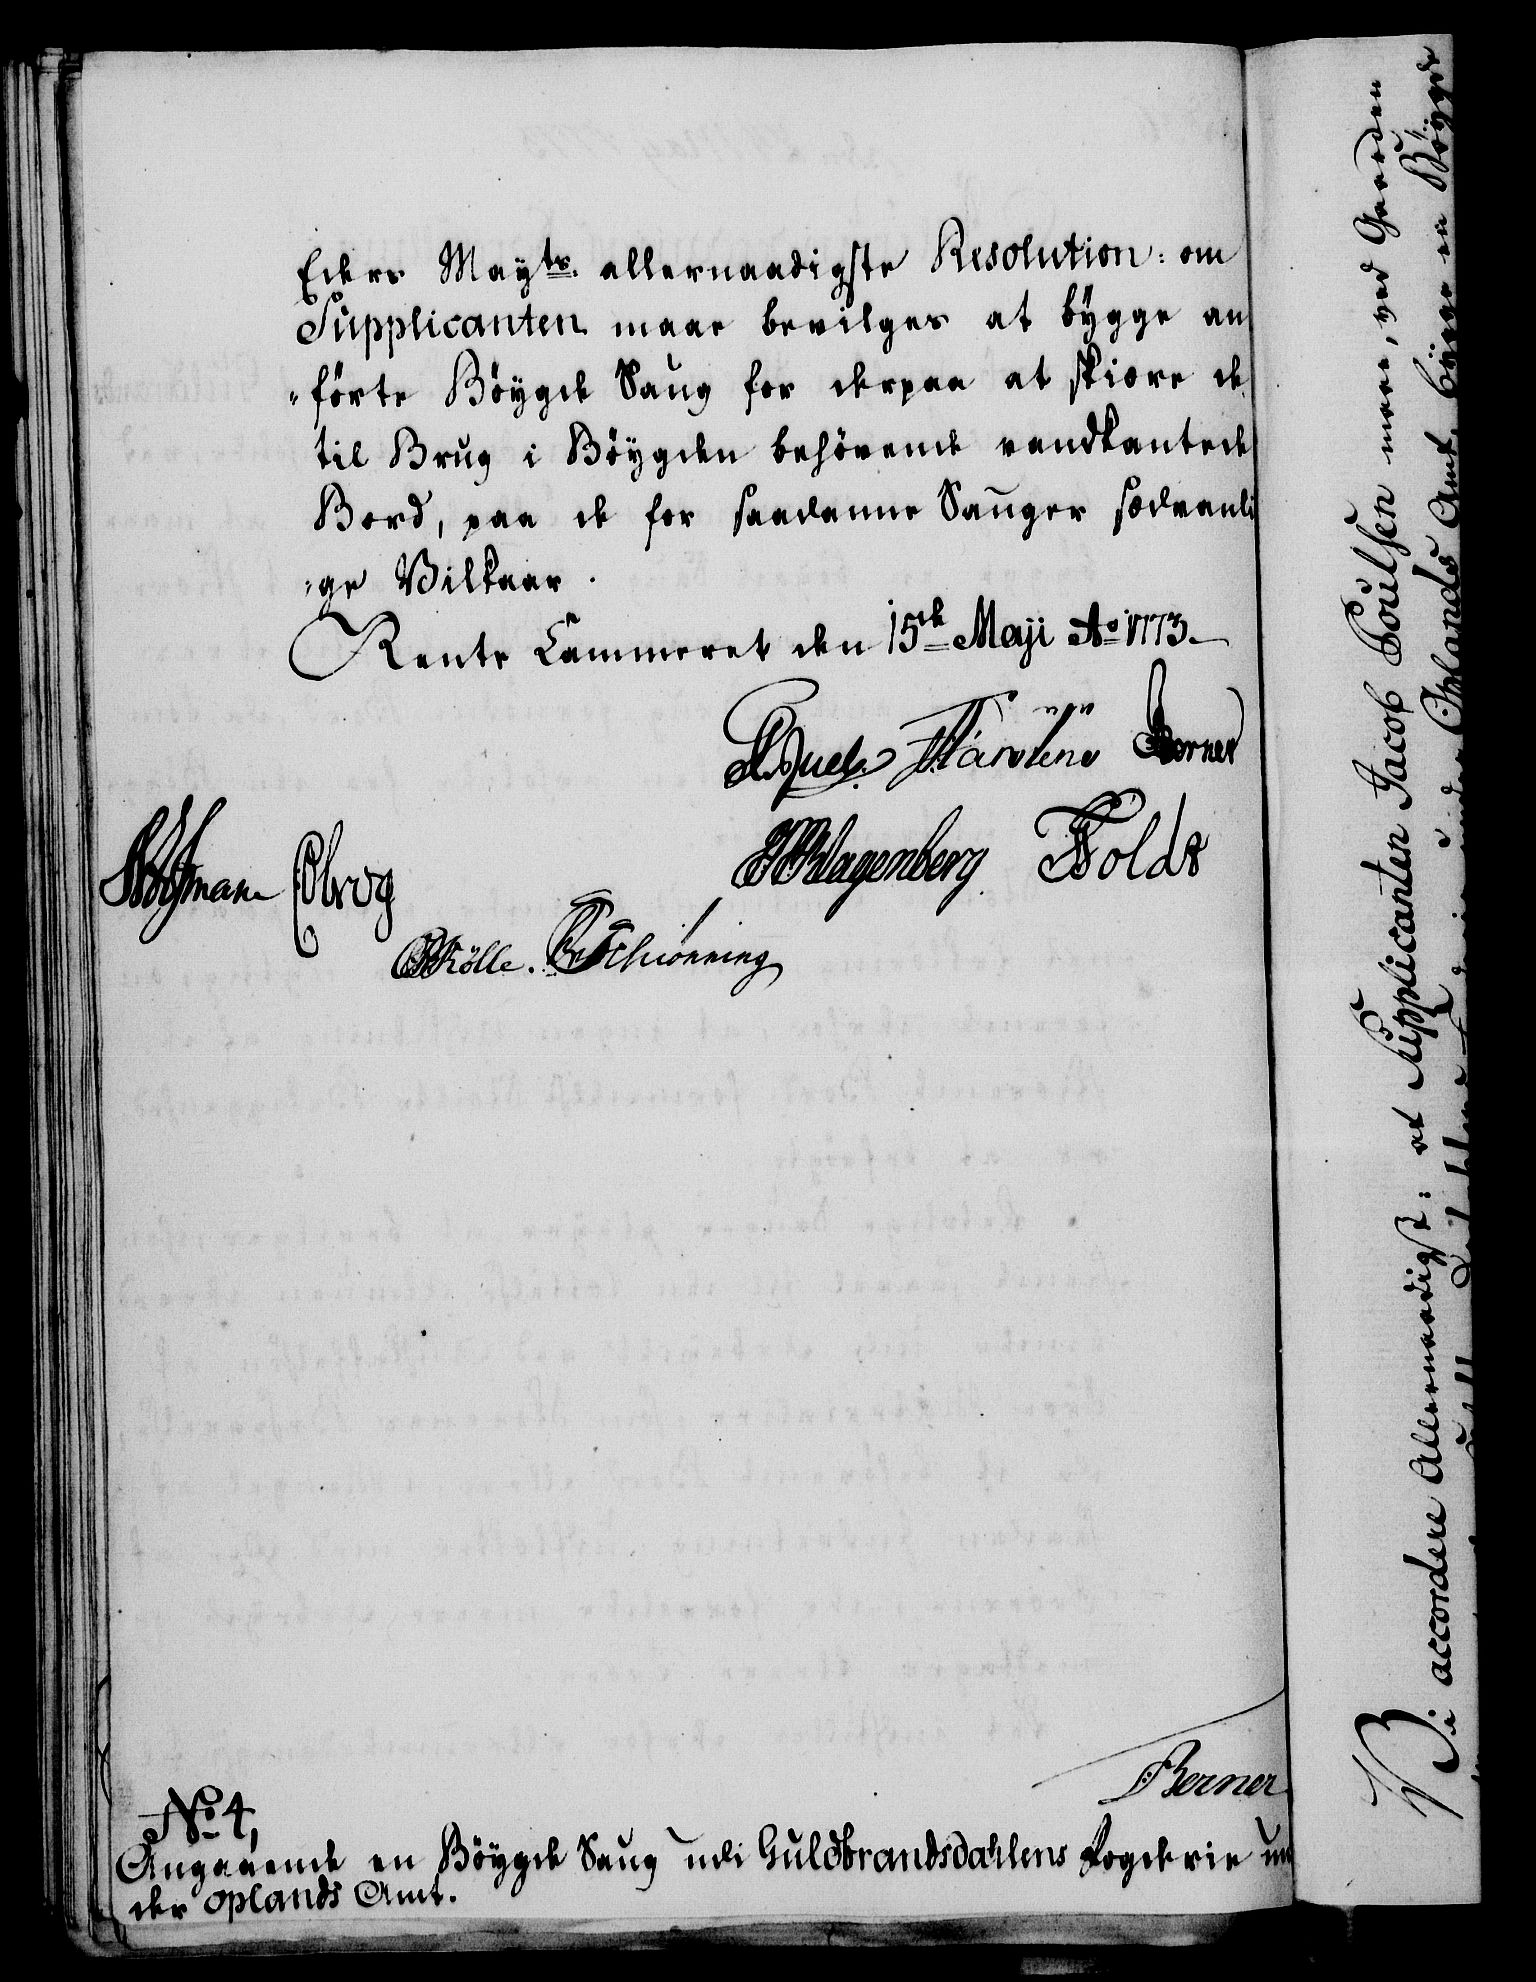 Eders Mayts. allernaadigste Resolution: om
Supplicanten maae bevilges at bÿgge an
-förte Böÿgde Saug for derpaa at skiære de
til Brug i Böÿgden behövende vandkantede
Bord, paa de for saadanne Sauger sædvanli
-ge Vilkaar.
Rente Cammeret den 15de Maji Ao 1773.
Juel. Berner
Klagenberg Foldt
Obrog
Kölle. Schiönning
Berner
No 4,
Angaaende en Böÿgde Saug udi Guldbrandsdahlens Fogderie un
der Oplands Amt.
Vi accordere Allernaadigst: at Supplicanten Jacob Poulsen maae, ved Gaarden
under Oplands Amt, bÿgge en Böÿgde